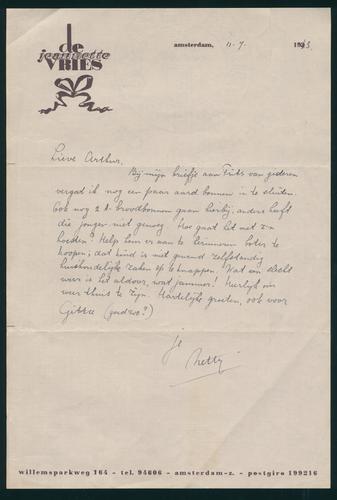 de
jeannette
VRIES
amsterdam, 11-7. 1943.
Lieve Arthur,
Bij mijn briefje aan Frits van gisteren
vergat ik nog een paar aard.bonnen in te sluiten.
Ook nog 2 A. broodbonnen gaan hierbij, anders heeft
die jongen niet genoeg. Hoe gaat het met z'n
hoeden? Help hem er aan te herinneren boter te
koopen; dat kind is niet gewend zelfstandig
huishoudelijke zaken op te knappen. Wat een slecht
weer is het aldoor, wat jammer! Heerlijk om
weer thuis te zijn. Hartelijke groeten, ook voor
Gitte (goed zo?)
je
Netty
willemsparkweg 164 – tel. 94606 – amsterdam-z. – postgiro 199216